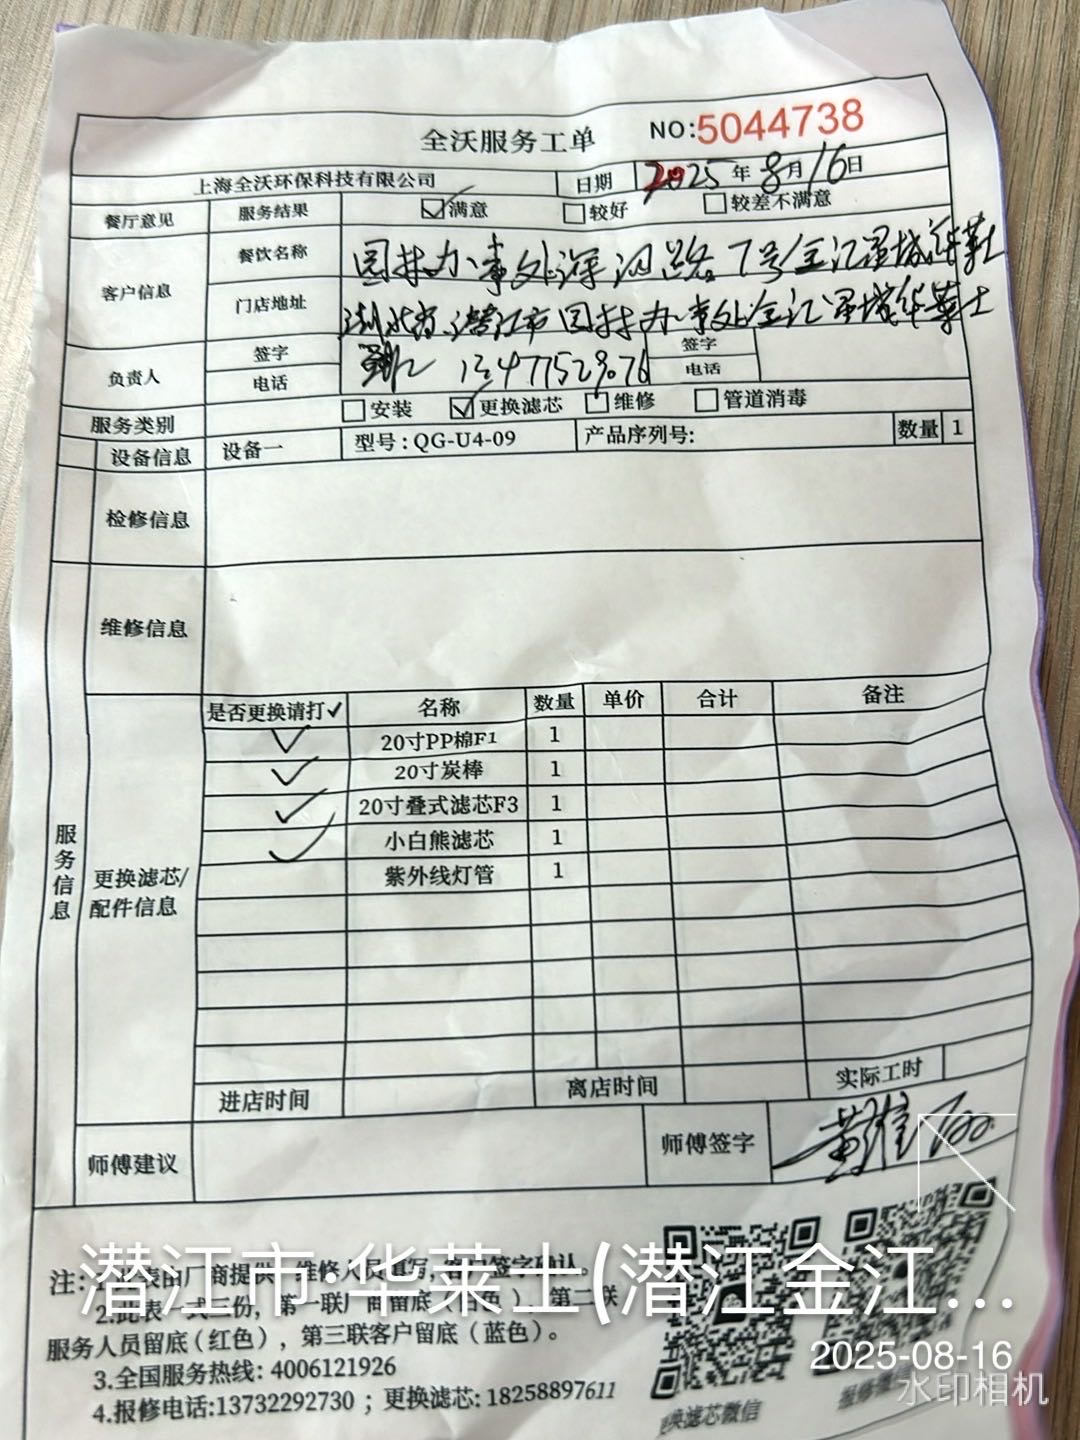 全沃服务工单 NO:5044738
上海全沃环保科技有限公司 日期 2025年8月16日
餐厅意见 服务结果 ☑满意 □较好 □较差不满意
客户信息 餐饮名称 园林办事处深河路7号金汇星城华莱士
门店地址 湖北省潜江市园林办事处金汇星城华莱士
负责人 签字 签字
电话 13477529076 电话
服务类别 □安装 ☑更换滤芯 □维修 □管道消毒
设备信息 设备一 型号:QG-U4-09 产品序列号: 数量 1
检修信息
维修信息
服务信息
更换滤芯/
配件信息
是否更换请打✓ 名称 数量 单价 合计 备注
✓ 20寸PP棉F1 1
✓ 20寸炭棒 1
✓ 20寸叠式滤芯F3 1
✓ 小白熊滤芯 1
紫外线灯管 1
进店时间 离店时间 实际工时
师傅建议 师傅签字
注:1.此表由厂商提供,维修人员填写,客户签字确认。
2.此表一式三份,第一联厂商留底(白色),第二联
服务人员留底(红色),第三联客户留底(蓝色)。
3.全国服务热线: 4006121926
4.报修电话:13732292730 ; 更换滤芯: 18258897611
更换滤芯微信
潜江市·华莱士(潜江金江...
2025-08-16
水印相机